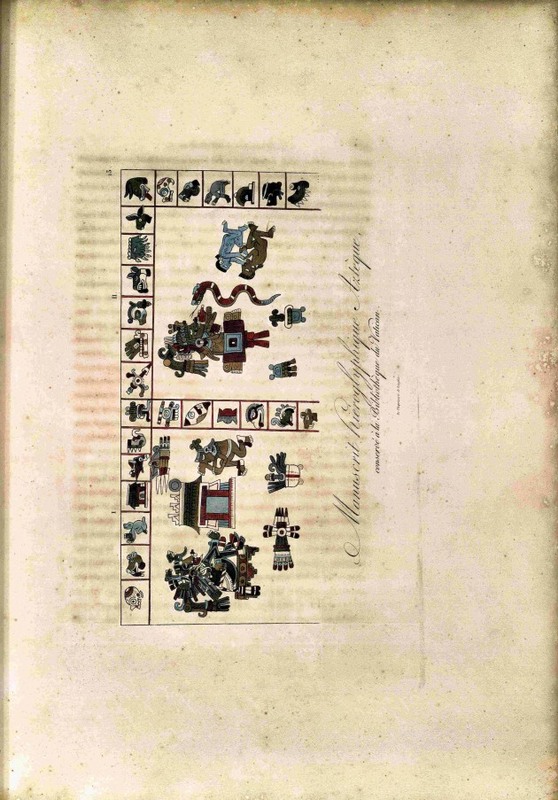 13
I
II
Manuscrit hiéroglyphique Aztèque,
conservé à la Bibliothèque du Vatican.